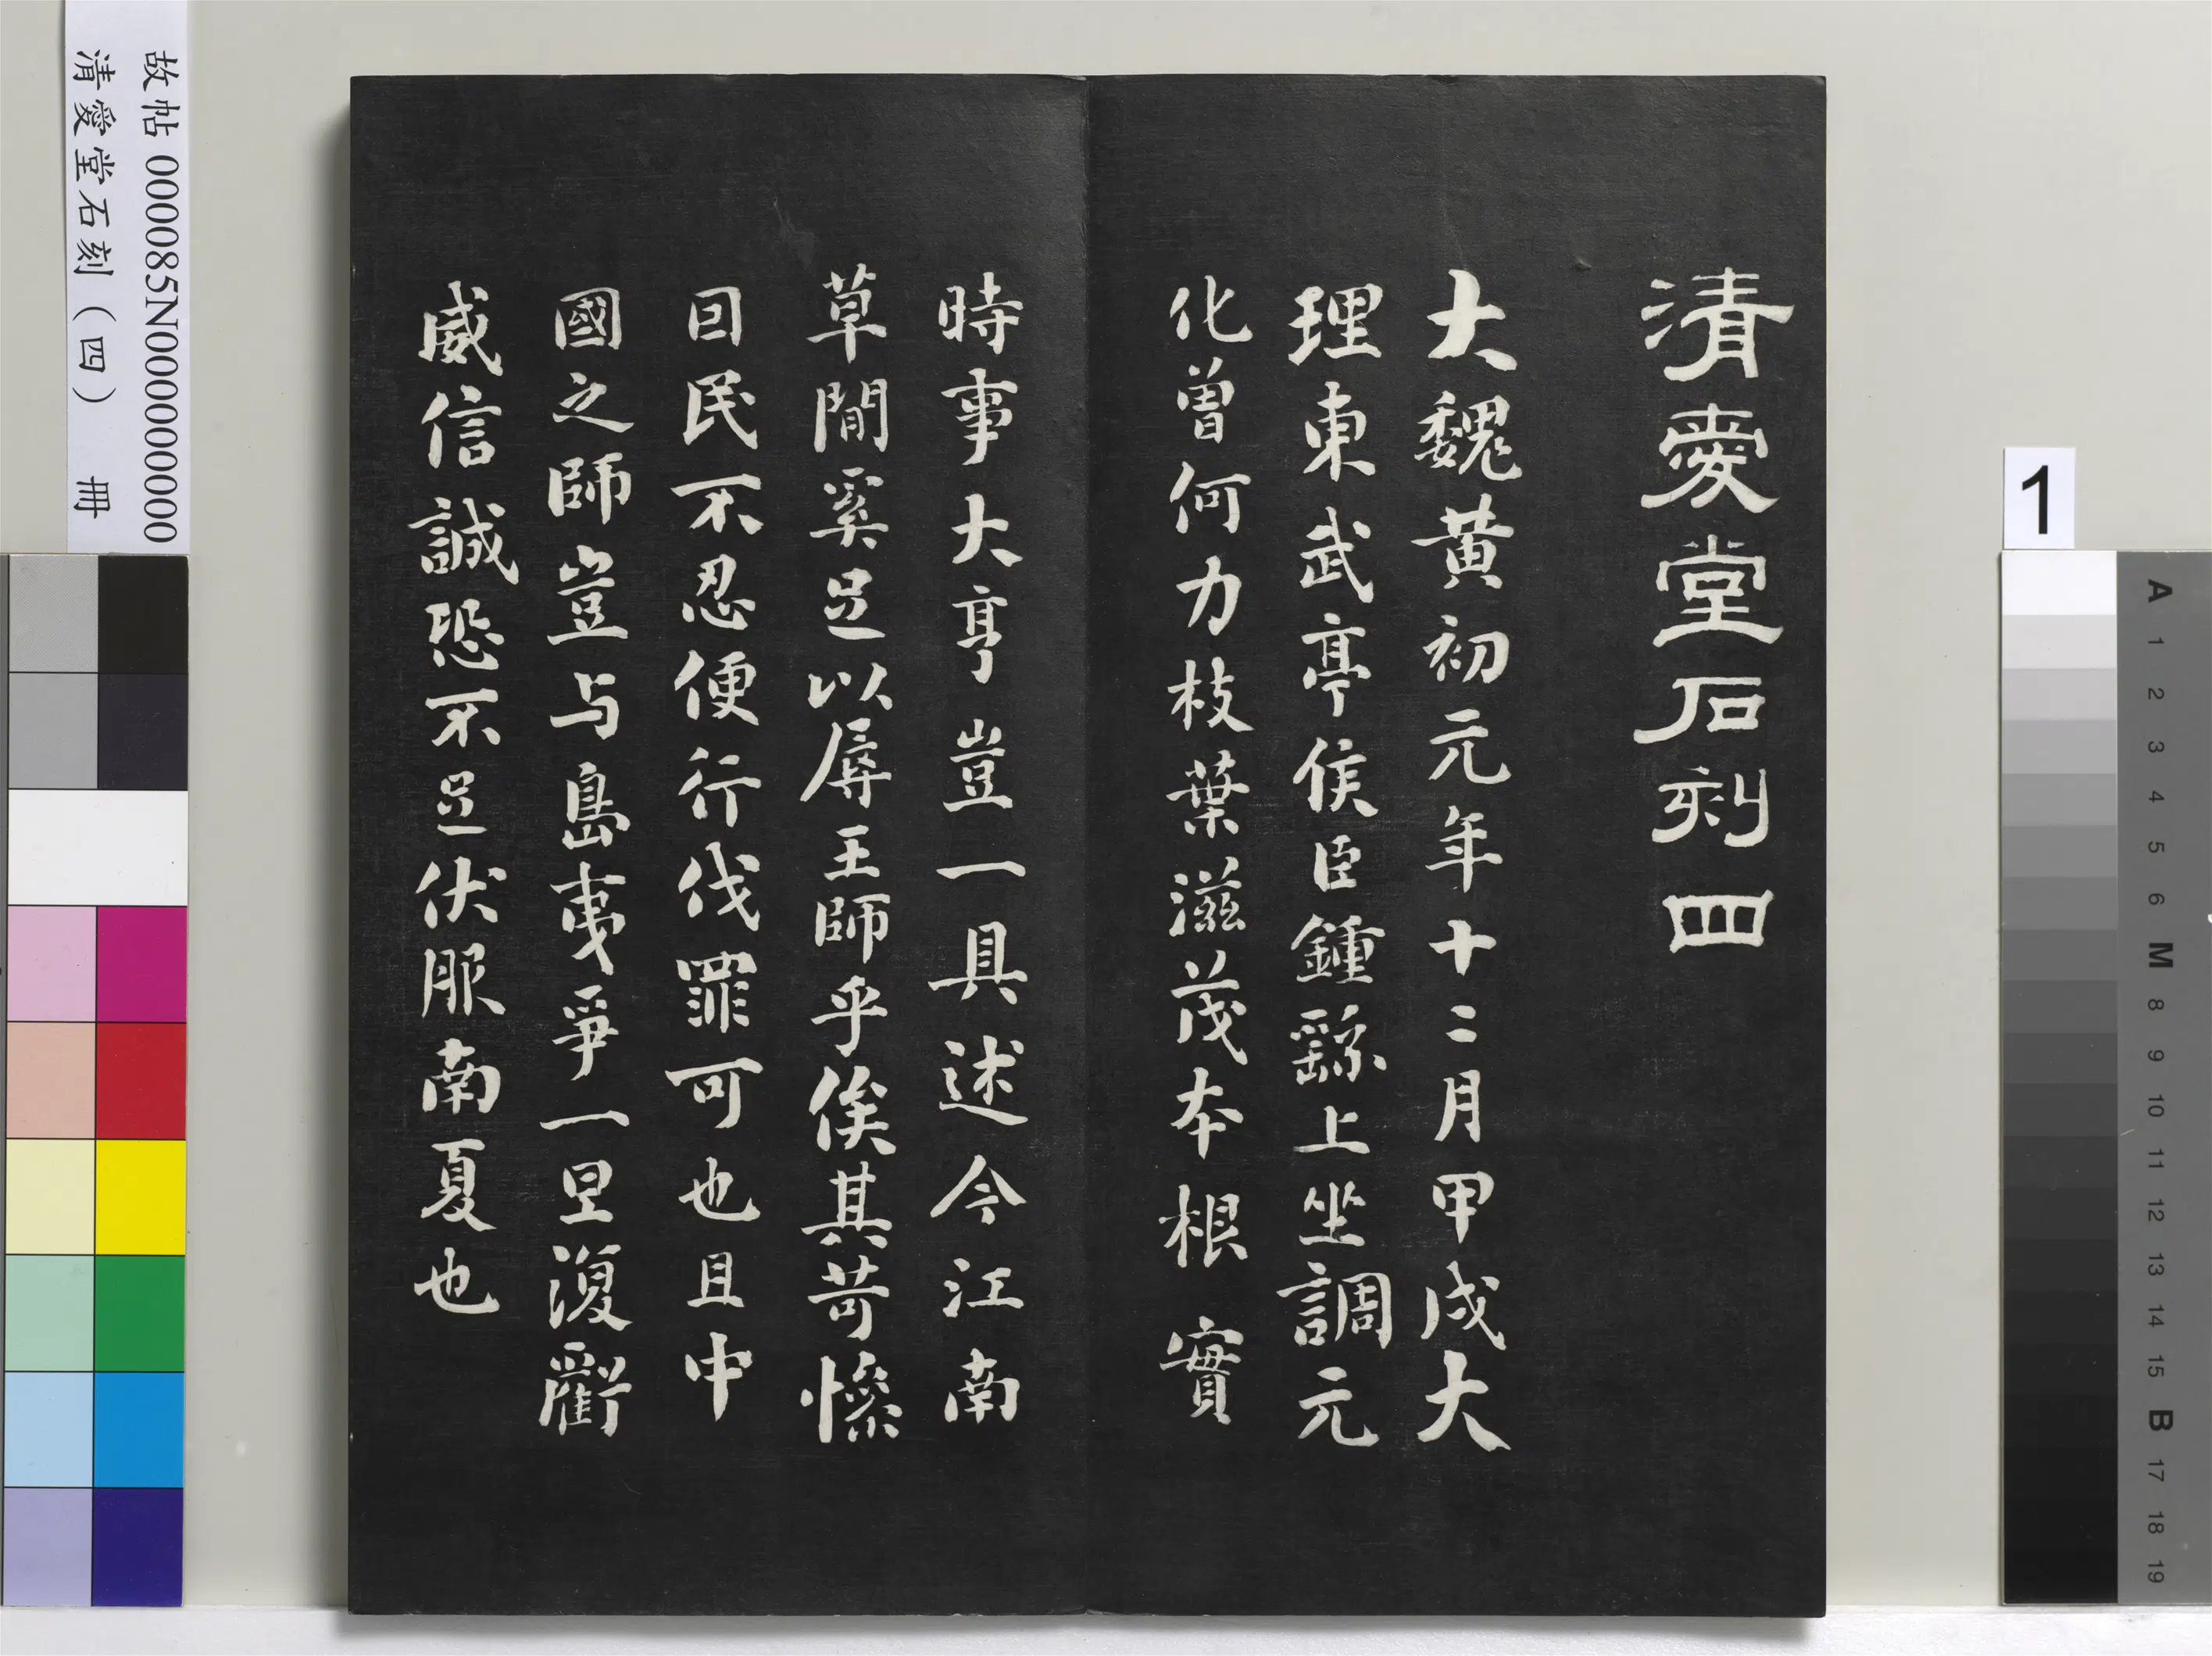 清愛堂石刻四
大魏黃初元年十二月甲戌大
理東武亭侯臣鍾繇上坐調元
化曾何力枝葉滋茂本根實
時事大亨豈一具述今江南
草間奚足以辱王師乎俟其苛慘
囙民不忍便行伐罪可也且中
國之師豈与島夷爭一旦復
威信誠恐不足伏服南夏也
故帖 000085N000000000
清愛堂石刻(四) 冊
1
A
1
2
3
4
5
6
M
8
9
10
11
12
13
14
15
B
17
18
19